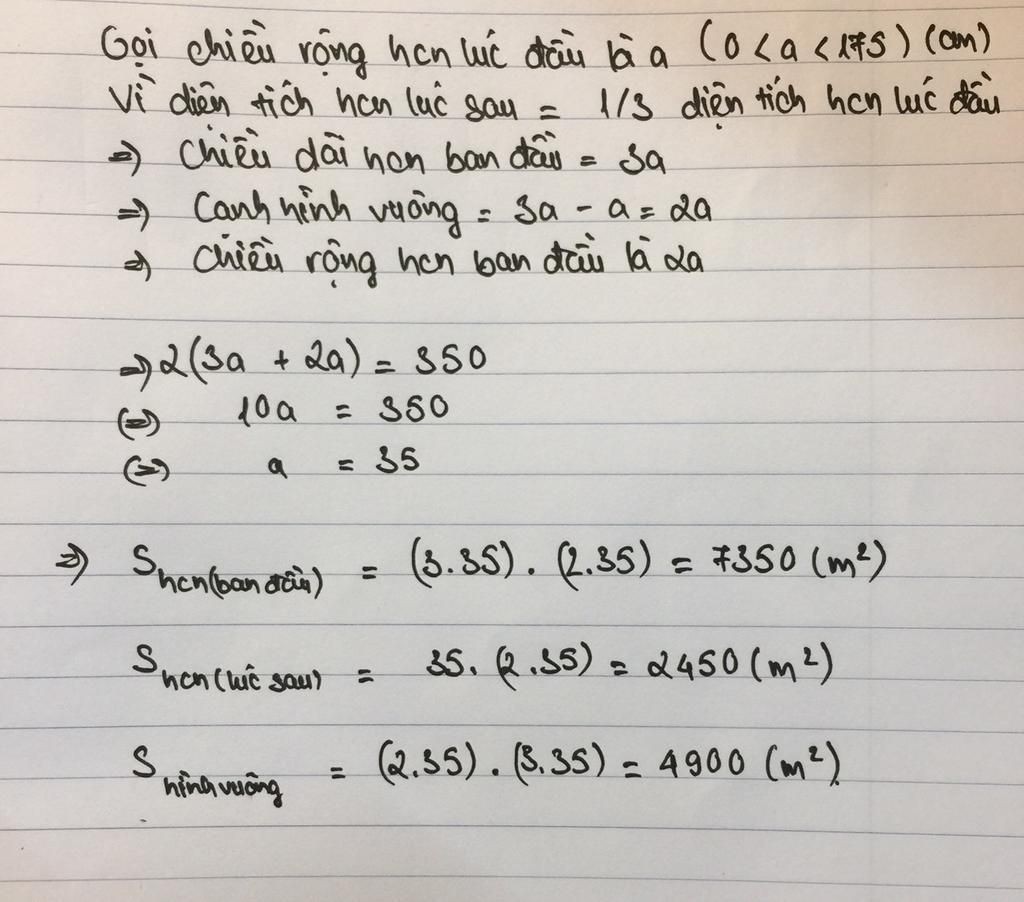 Gọi chiều rộng hcn lúc đầu là a (0 < a < 175) (cm)
Vì diện tích hcn lúc sau = 1/3 diện tích hcn lúc đầu
=> Chiều dài hcn ban đầu = 3a
=> Cạnh hình vuông = 3a - a = 2a
=> Chiều rộng hcn ban đầu là 2a
=> 2(3a + 2a) = 350
(=>) 10a = 350
(=>) a = 35
=> S hcn(ban đầu) = (3.35) . (2.35) = 7350 (m²)
S hcn (lúc sau) = 35. (2.35) = 2450 (m²)
S hình vuông = (2.35) . (3.35) = 4900 (m²).